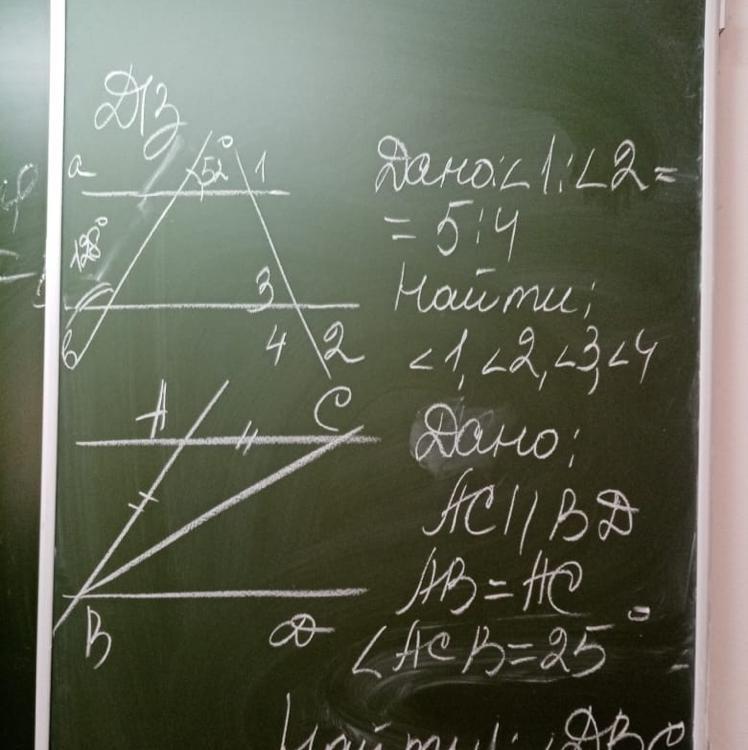 ДЗ
a
52°
1
128°
3
в
4
2
Дано: ∠1:∠2=
= 5:4
Найти:
∠1, ∠2, ∠3, ∠4
A
C
B
D
Дано:
AC || BD
AB = AC
∠ACB = 25°
Найти: